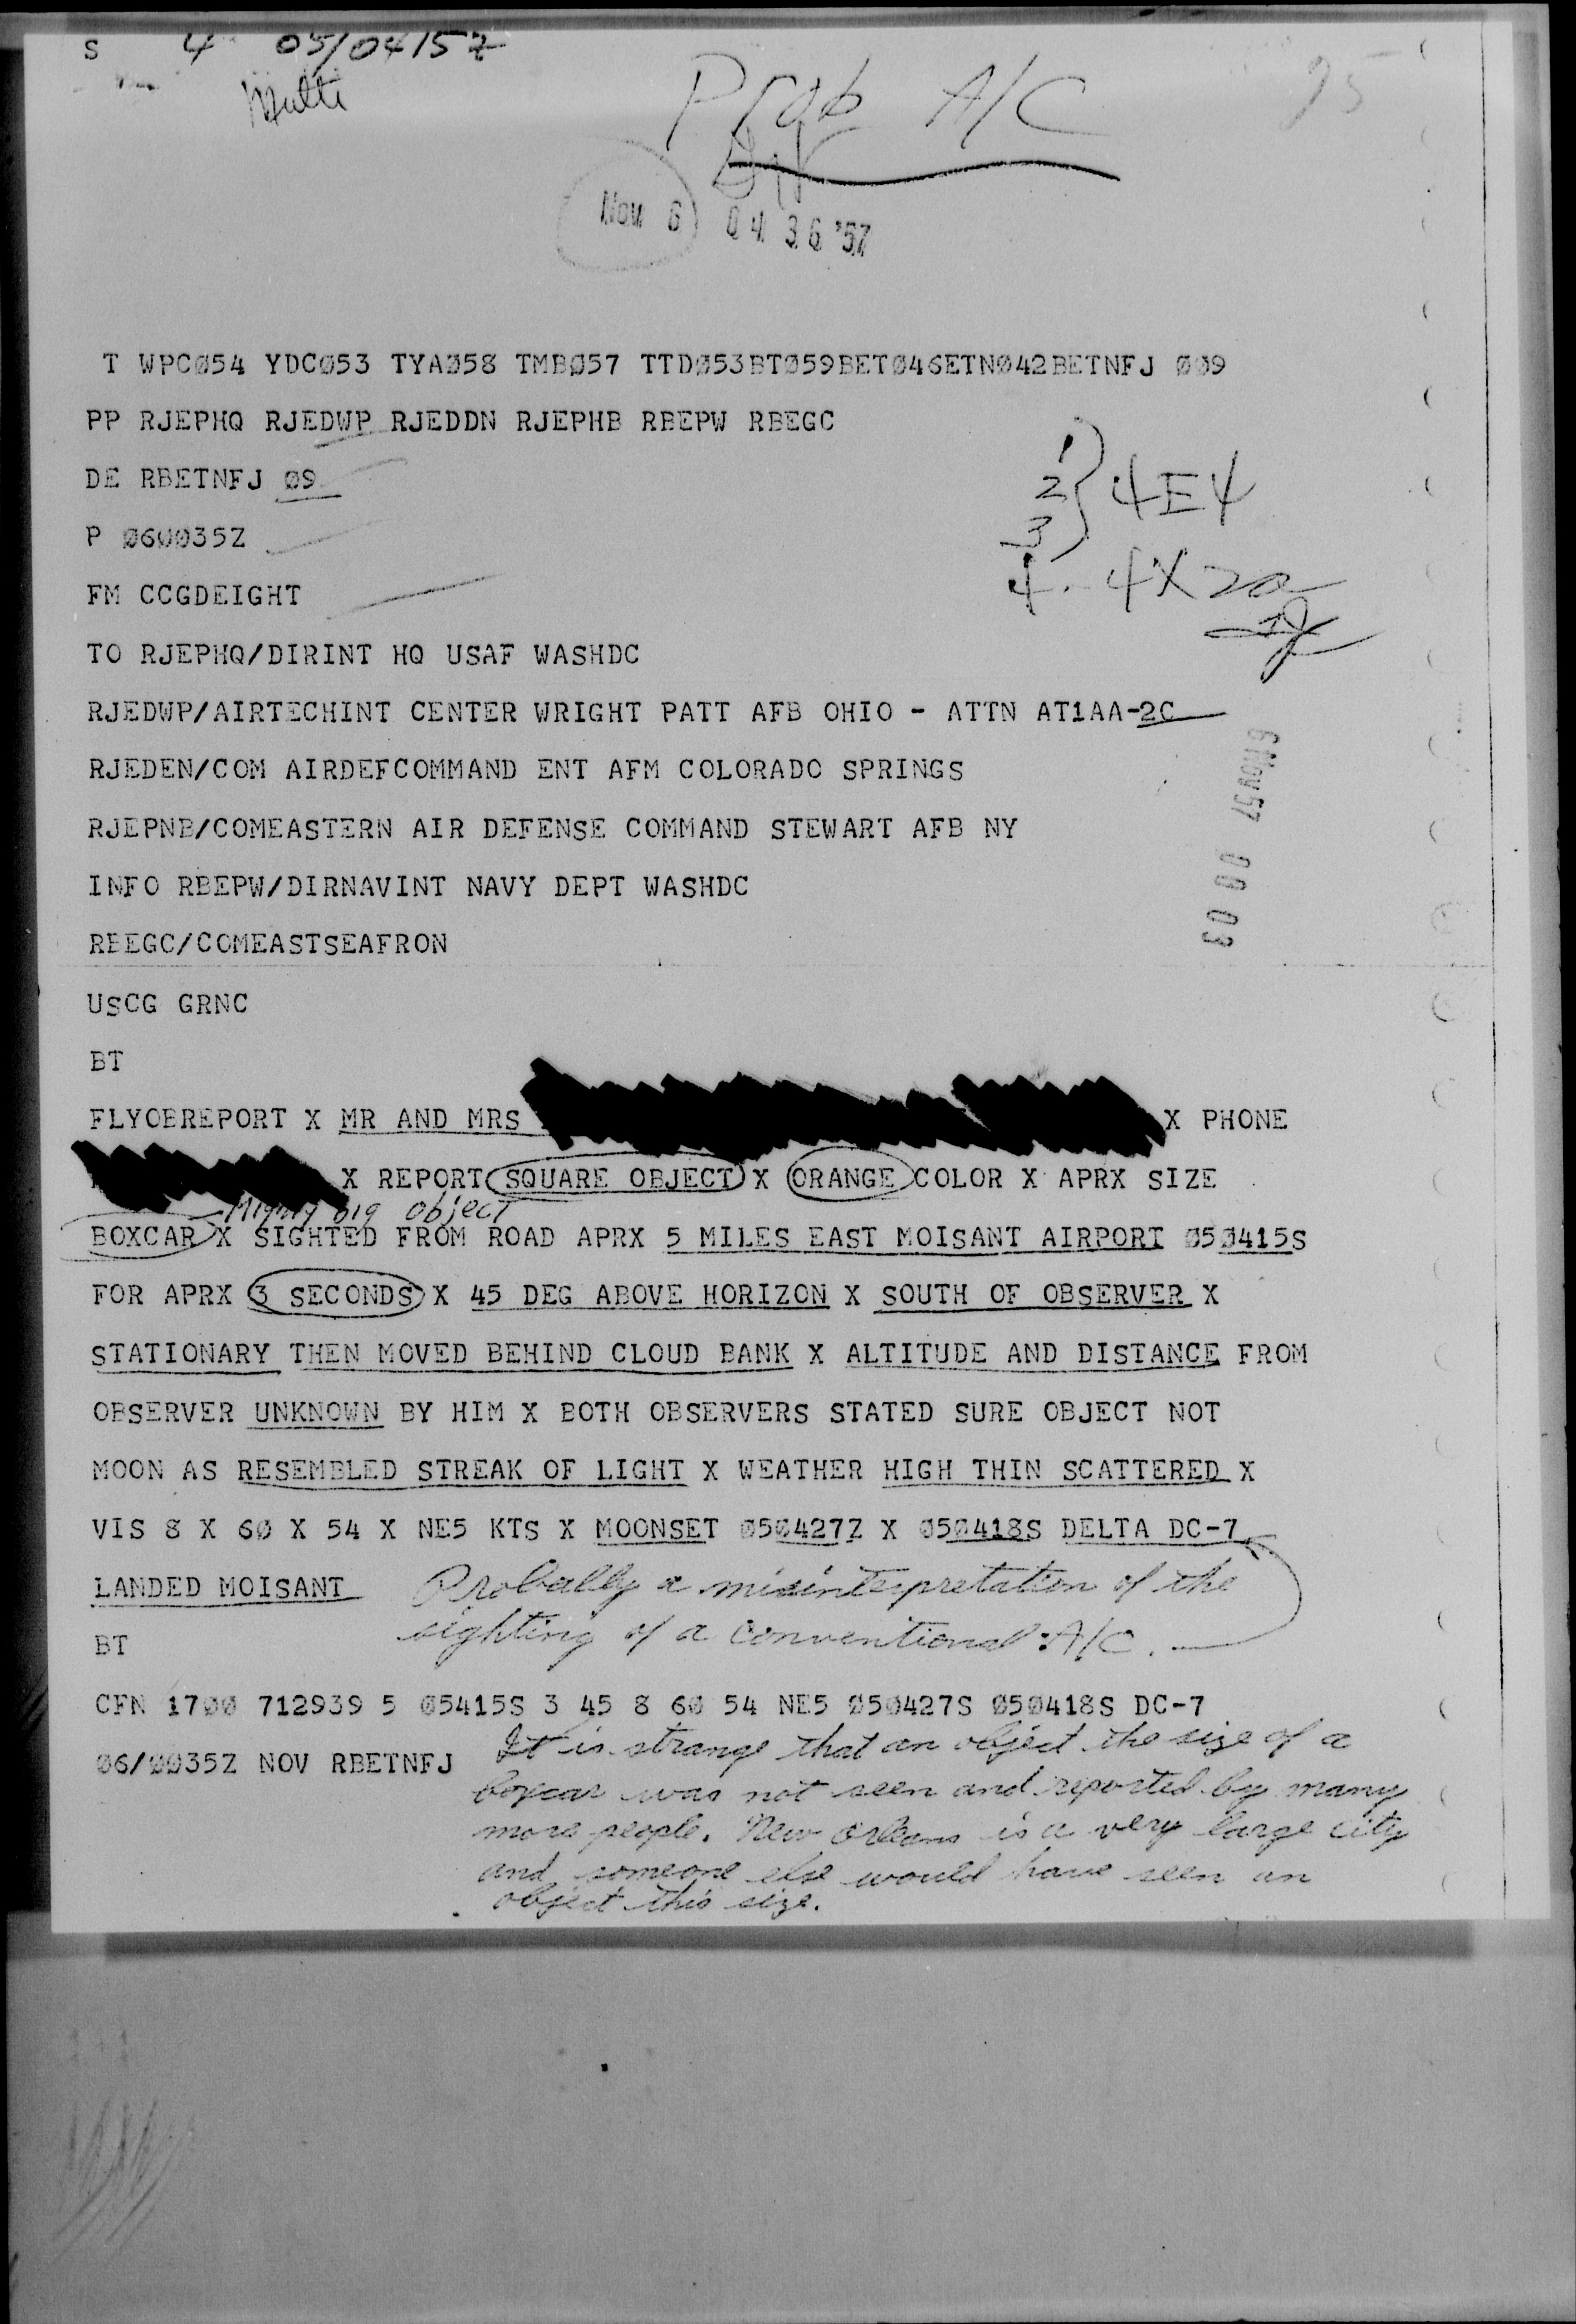 S 4 05/0415Z
Multi
Prob A/C
75
Nov 6 04 36 '57
T WPCØ54 YDCØ53 TYAØ58 TMBØ57 TTDØ53BTØ59BETØ46ETNØ42BETNFJ ØØ9
PP RJEPHQ RJEDWP RJEDDN RJEPHB RBEPW RBEGC
DE RBETNFJ Ø9
P Ø6ØØ35Z
FM CCGDEIGHT
1
2 } 4E4
3
4. 4X2a
TO RJEPHQ/DIRINT HQ USAF WASHDC
RJEDWP/AIRTECHINT CENTER WRIGHT PATT AFB OHIO - ATTN AT1AA-2C
RJEDEN/COM AIRDEFCOMMAND ENT AFM COLORADO SPRINGS
RJEPNB/COMEASTERN AIR DEFENSE COMMAND STEWART AFB NY
6 Nov 57 00 03
INFO RBEPW/DIRNAVINT NAVY DEPT WASHDC
RBEGC/COMEASTSEAFRON
USCG GRNC
BT
FLYOBREPORT X MR AND MRS X PHONE
X REPORT SQUARE OBJECT X ORANGE COLOR X APRX SIZE
Mighty big object
BOXCAR X SIGHTED FROM ROAD APRX 5 MILES EAST MOISANT AIRPORT Ø5Ø415S
FOR APRX 3 SECONDS X 45 DEG ABOVE HORIZON X SOUTH OF OBSERVER X
STATIONARY THEN MOVED BEHIND CLOUD BANK X ALTITUDE AND DISTANCE FROM
OBSERVER UNKNOWN BY HIM X BOTH OBSERVERS STATED SURE OBJECT NOT
MOON AS RESEMBLED STREAK OF LIGHT X WEATHER HIGH THIN SCATTERED X
VIS 8 X 6Ø X 54 X NE5 KTS X MOONSET Ø5Ø427Z X Ø5Ø418S DELTA DC-7
LANDED MOISANT
Probally a misinterpretation of the
sighting of a conventional A/C.
BT
CFN 17ØØ 712939 5 Ø5415S 3 45 8 6Ø 54 NE5 Ø5Ø427S Ø5Ø418S DC-7
Ø6/ØØ35Z NOV RBETNFJ
It is strange that an object the size of a
boxcar was not seen and reported by many
more people. New Orleans is a very large city
and someone else would have seen an
object this size.